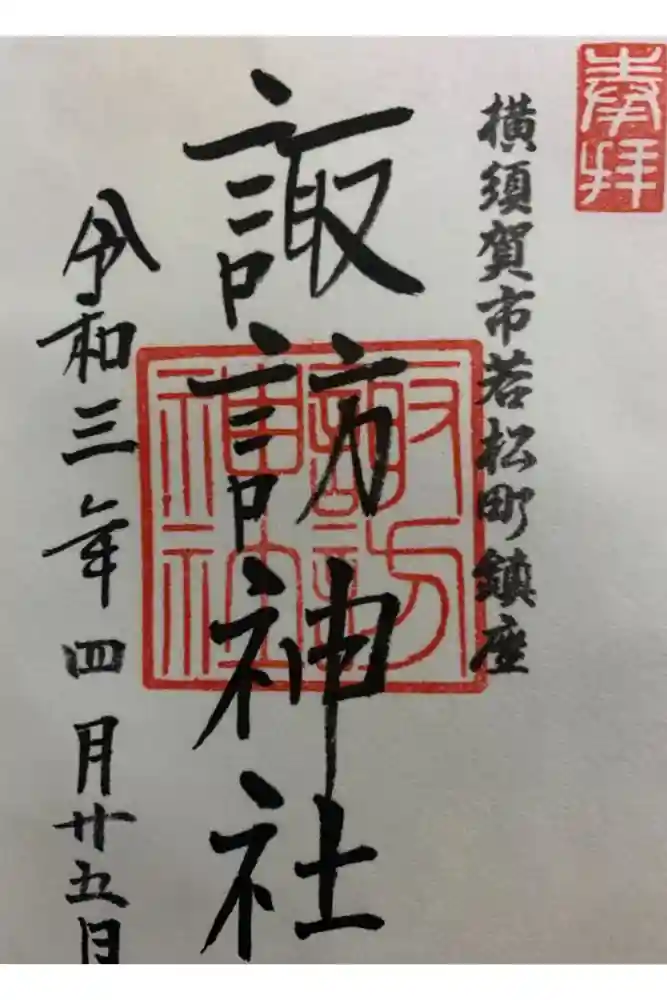 奉拝
横須賀市若松町鎮座
諏訪神社
諏訪神社
令和三年四月廿五日